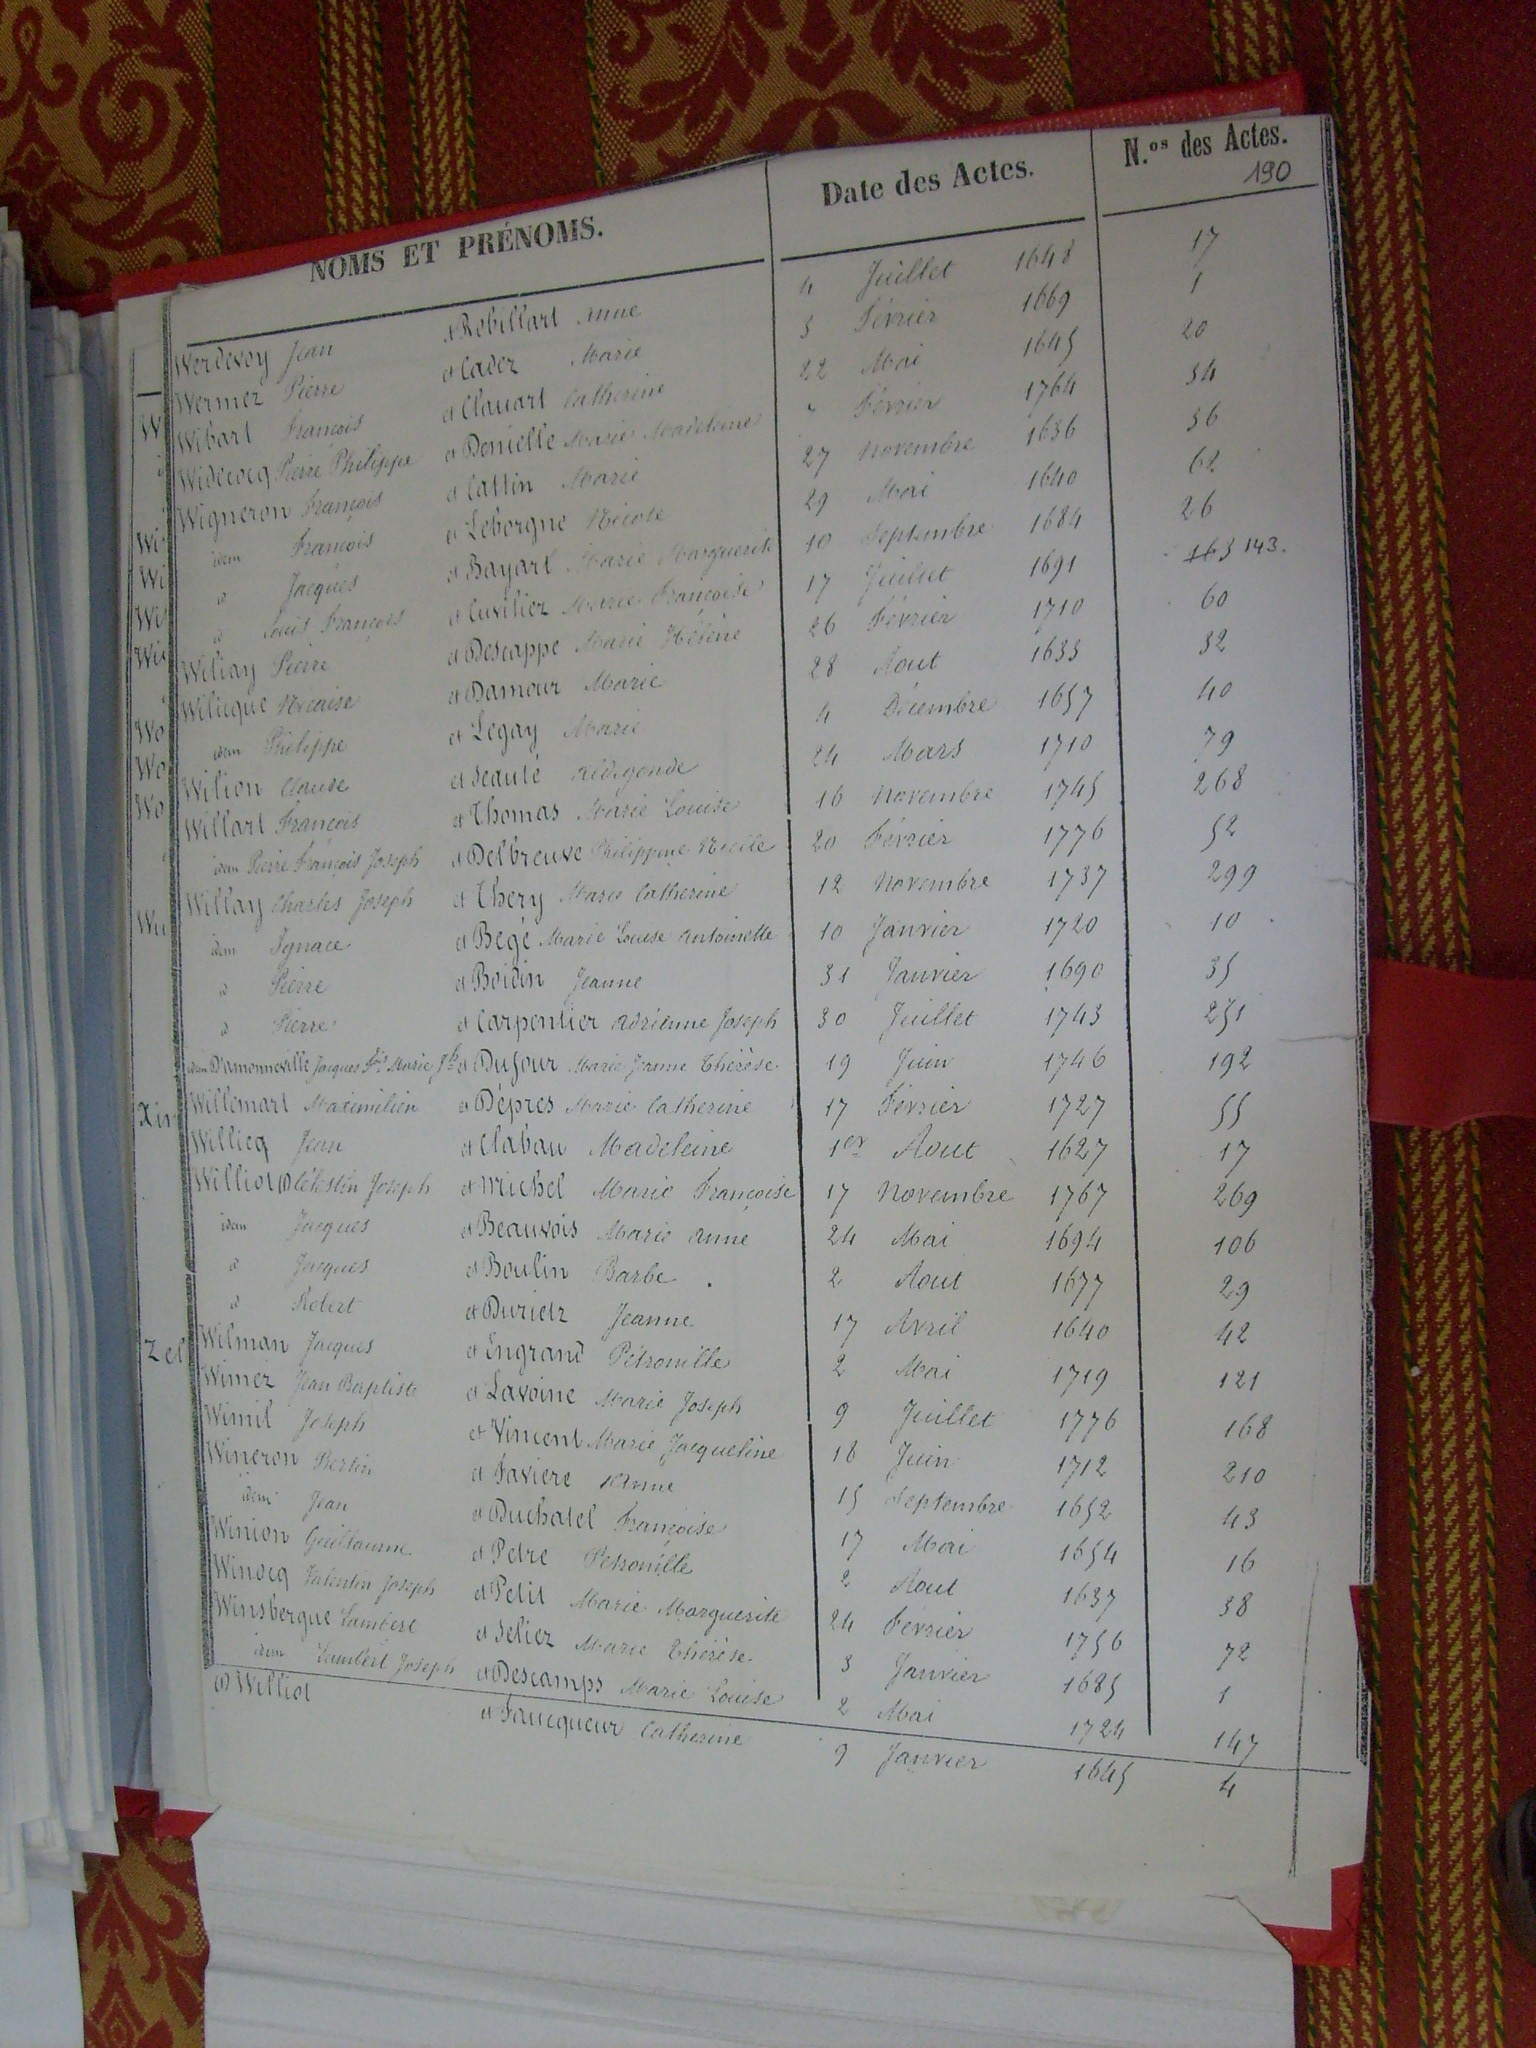 NOMS ET PRÉNOMS. Date des Actes. N.os des Actes.
190
Werdevoy Jean et Robillart Anne 4 Juillet 1648 17
Wermez Pierre et Cadez Marie 3 Février 1669 1
Wibart François et Clauart Catherine 22 Mai 1645 20
Widecocq Pierre Philippe et Denielle Marie Madeleine " Février 1764 34
Wigneron François et Cattin Marie 27 Novembre 1636 36
idem François et Leborgne Nicole 29 Mai 1640 62
d Jacques et Bayart Marie Marguerite 10 Septembre 1684 26
d Louis François et Cuvilier Marie Françoise 17 Juillet 1691 163 143.
Wiliay Pierre et Descappe Marie Hélène 26 Février 1710 60
Wilicque Nicaise et Damour Marie 28 Aout 1633 32
idem Philippe et Legay Marie 4 Décembre 1657 40
Wilion Claude et Seauté Aldegonde 24 Mars 1710 79
Willart François et Thomas Marie Louise 16 Novembre 1745 268
idem Pierre François Joseph et Delbreuve Philippine 20 Février 1776 52
Willay Charles Joseph et Thery Marie Catherine 12 Novembre 1737 299
idem Ignace et Bégé Marie Louise Antoinette 10 Janvier 1720 10
d Pierre et Boidin Jeanne 31 Janvier 1690 35
d Pierre et Carpentier Adrienne Joseph 30 Juillet 1743 251
idem D'amonneville Jacques Fs Marie Jh et Dufour Marie Jeanne Thérèse 19 Juin 1746 192
Willemart Maximilien et Dépres Marie Catherine 17 Février 1727 55
Willicq Jean et Clabau Madeleine 1er Aout 1627 17
Williot (1) Célestin Joseph et Michel Marie Françoise 17 Novembre 1767 269
idem Jacques et Beauvois Marie Anne 24 Mai 1694 106
d Jacques et Boulin Barbe 2 Aout 1677 29
d Robert et Durietz Jeanne 17 Avril 1640 42
Wilman Jacques et Engrand Pétronille 2 Mai 1719 121
Wimez Jean Baptiste et Lavoine Marie Joseph 9 Juillet 1776 168
Wimil Joseph et Vincent Marie Jacqueline 18 Juin 1712 210
Wineron Bertin et Faviere Anne 15 Septembre 1652 43
idem Jean et Duchatel Françoise 17 Mai 1654 16
Winion Guillaume et Petre Petronille 2 Aout 1637 38
Winocq Valentin Joseph et Petit Marie Marguerite 24 Février 1756 72
Winsbergue Lambert et Seliez Marie Thérèse 3 Janvier 1685 1
idem Lambert Joseph et Descamps Marie Louise 2 Mai 1724 147
(1) Williot et Faucqueur Catherine 9 Janvier 1645 4